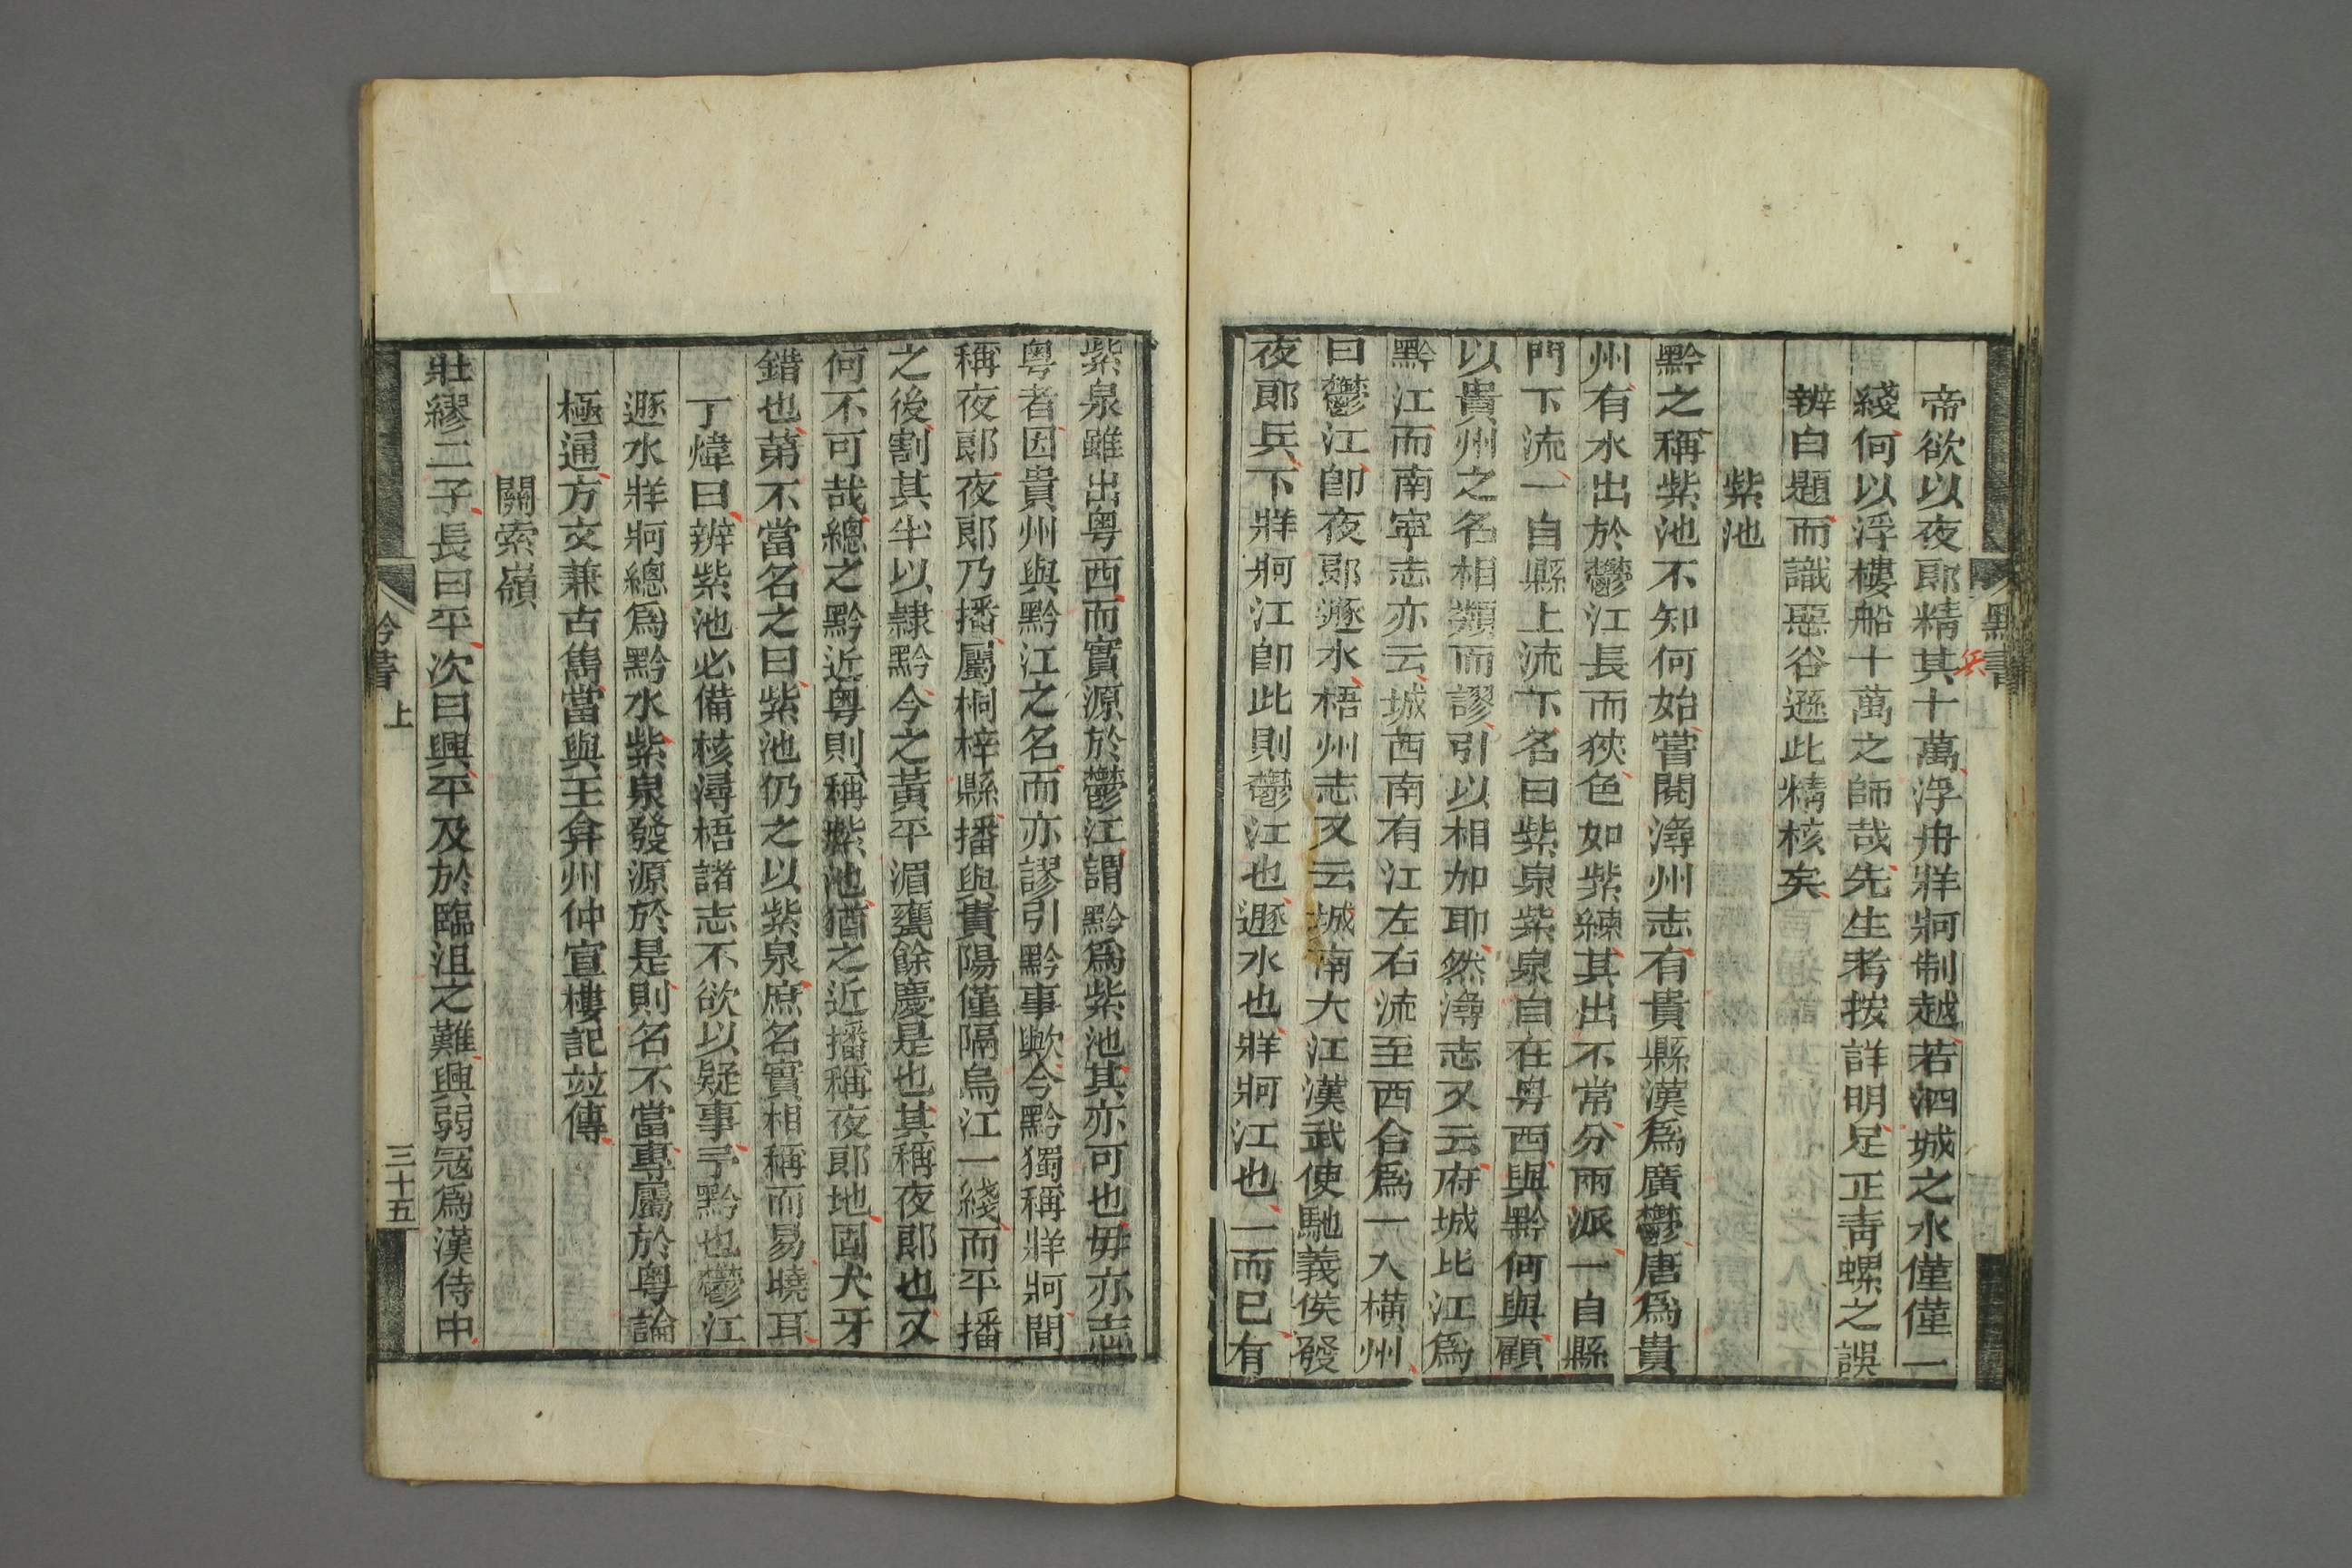 黔書
上
帝欲以夜郎精其十萬浮舟牂牁制越若泗城之水僅僅一
兵
綫何以浮樓船十萬之師哉先生考按詳明足正青螺之誤
辨白題而識惡谷遜此精核矣
紫池
黔之稱紫池不知何始嘗閱潯州志有貴縣漢爲廣鬱唐爲貴
州有水出於鬱江長而狹色如紫練其出不常分兩派一自縣
門下流一自縣上流下名曰紫泉紫泉自在粤西與黔何與顧
以貴州之名相類而謬引以相加耶然潯志又云府城比江爲
黔江而南寧志亦云城西南有江左右流至西合爲一入橫州
曰鬱江卽夜郎遯水梧州志又云城南大江漢武使馳義侯發
夜郎兵下牂牁江卽此則鬱江也遯水也牂牁江也一而已有
紫泉雖出粤西而實源於鬱江謂黔爲紫池其亦可也毋亦志
粤者因貴州與黔江之名而亦謬引黔事歟今黔獨稱牂牁間
稱夜郎夜郎乃播屬桐梓縣播與貴陽僅隔烏江一綫而平播
之後割其半以隸黔今之黃平湄甕餘慶是也其稱夜郎也又
何不可哉總之黔近粤則稱紫池猶之近播稱夜郎地固犬牙
錯也第不當名之曰紫池仍之以紫泉庶名實相稱而易曉耳
丁煒曰辨紫池必備核潯梧諸志不欲以疑事予黔也鬱江
遯水牂牁總爲黔水紫泉發源於是則名不當專屬於粤論
極通方文兼古雋當與王弇州仲宣樓記竝傳
關索嶺
壯繆二子長曰平次曰興平及於臨沮之難興弱冠爲漢侍中
黔書
上
三十五